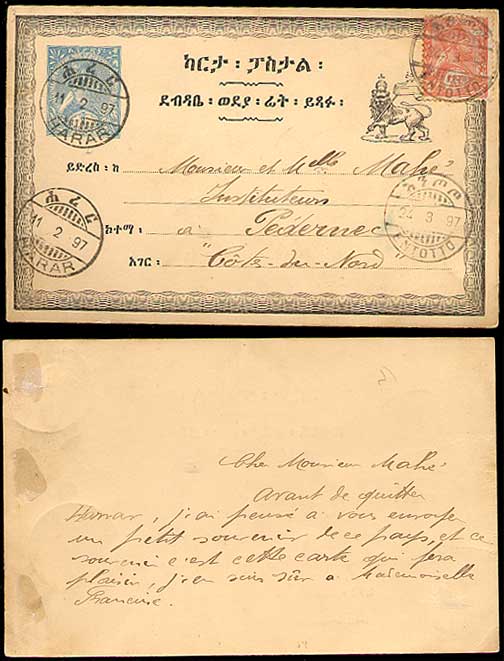 ካርታ፡ ፖስታል፡
ደብዳቤ፡ ወደያ፡ ፊት፡ ይዳፉ፡
ሐረር
11 2 97
HARAR
ENTOTTO
ይድረስ፡ ለ Monsieur et Mlle Mahé
Instituteurs
ከተማ፡ à Pédernec
አገር፡ "Côtes-du-Nord"
ሐረር
11 2 97
HARAR
24 3 97
ENTOTTO
Cher Monsieur Mahé
Avant de quitter
Harrar, j'ai pensé à vous envoyer
un petit souvenir de ce pays, et ce
souvenir c'est cette carte qui fera
plaisir, j'en suis sûr a Mademoiselle
Francine.